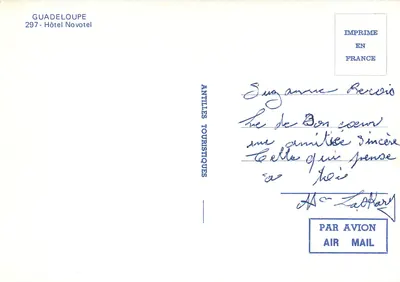 GUADELOUPE
297 - Hôtel Novotel
IMPRIME
EN
FRANCE
ANTILLES TOURISTIQUES
Suzanne
de Bon coeur
une amitiée Sincère
Celle qui pense
a toi
PAR AVION
AIR MAIL